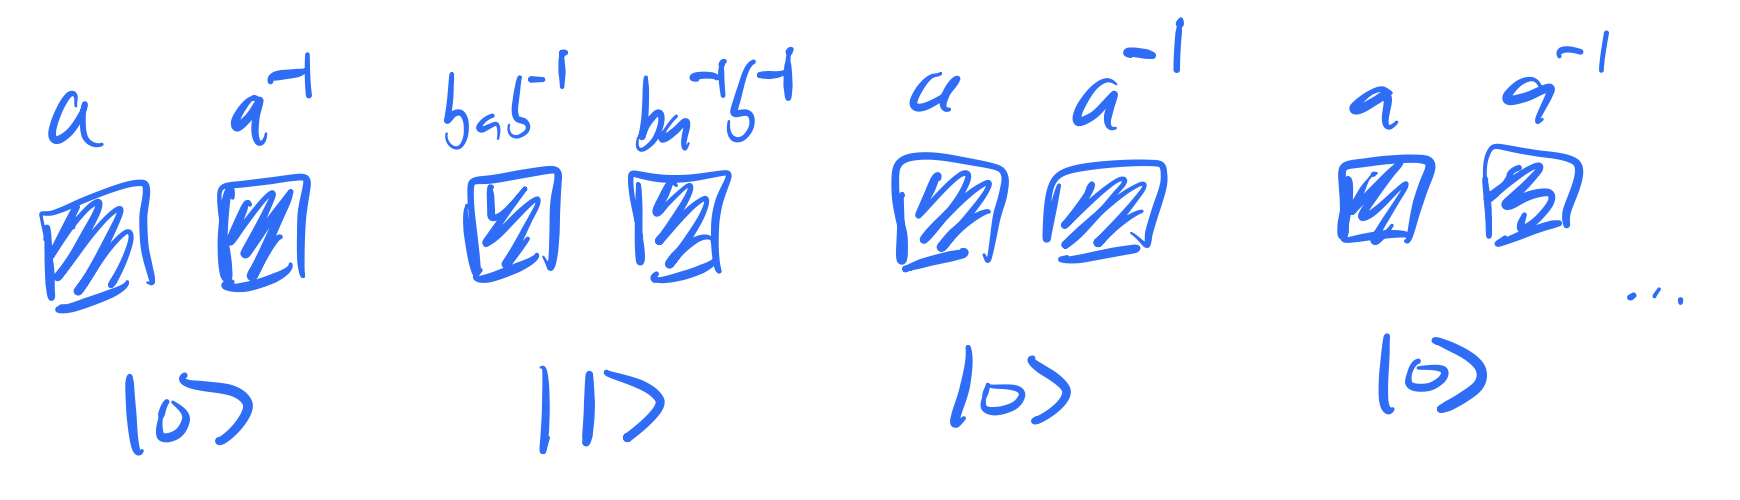 a a⁻¹ bab⁻¹ ba⁻¹b⁻¹ a a⁻¹ a a⁻¹
...
|0⟩ |1⟩ |0⟩ |0⟩